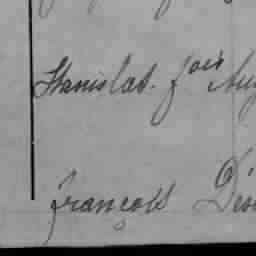 Stanislas. fois Aug
françois Dési